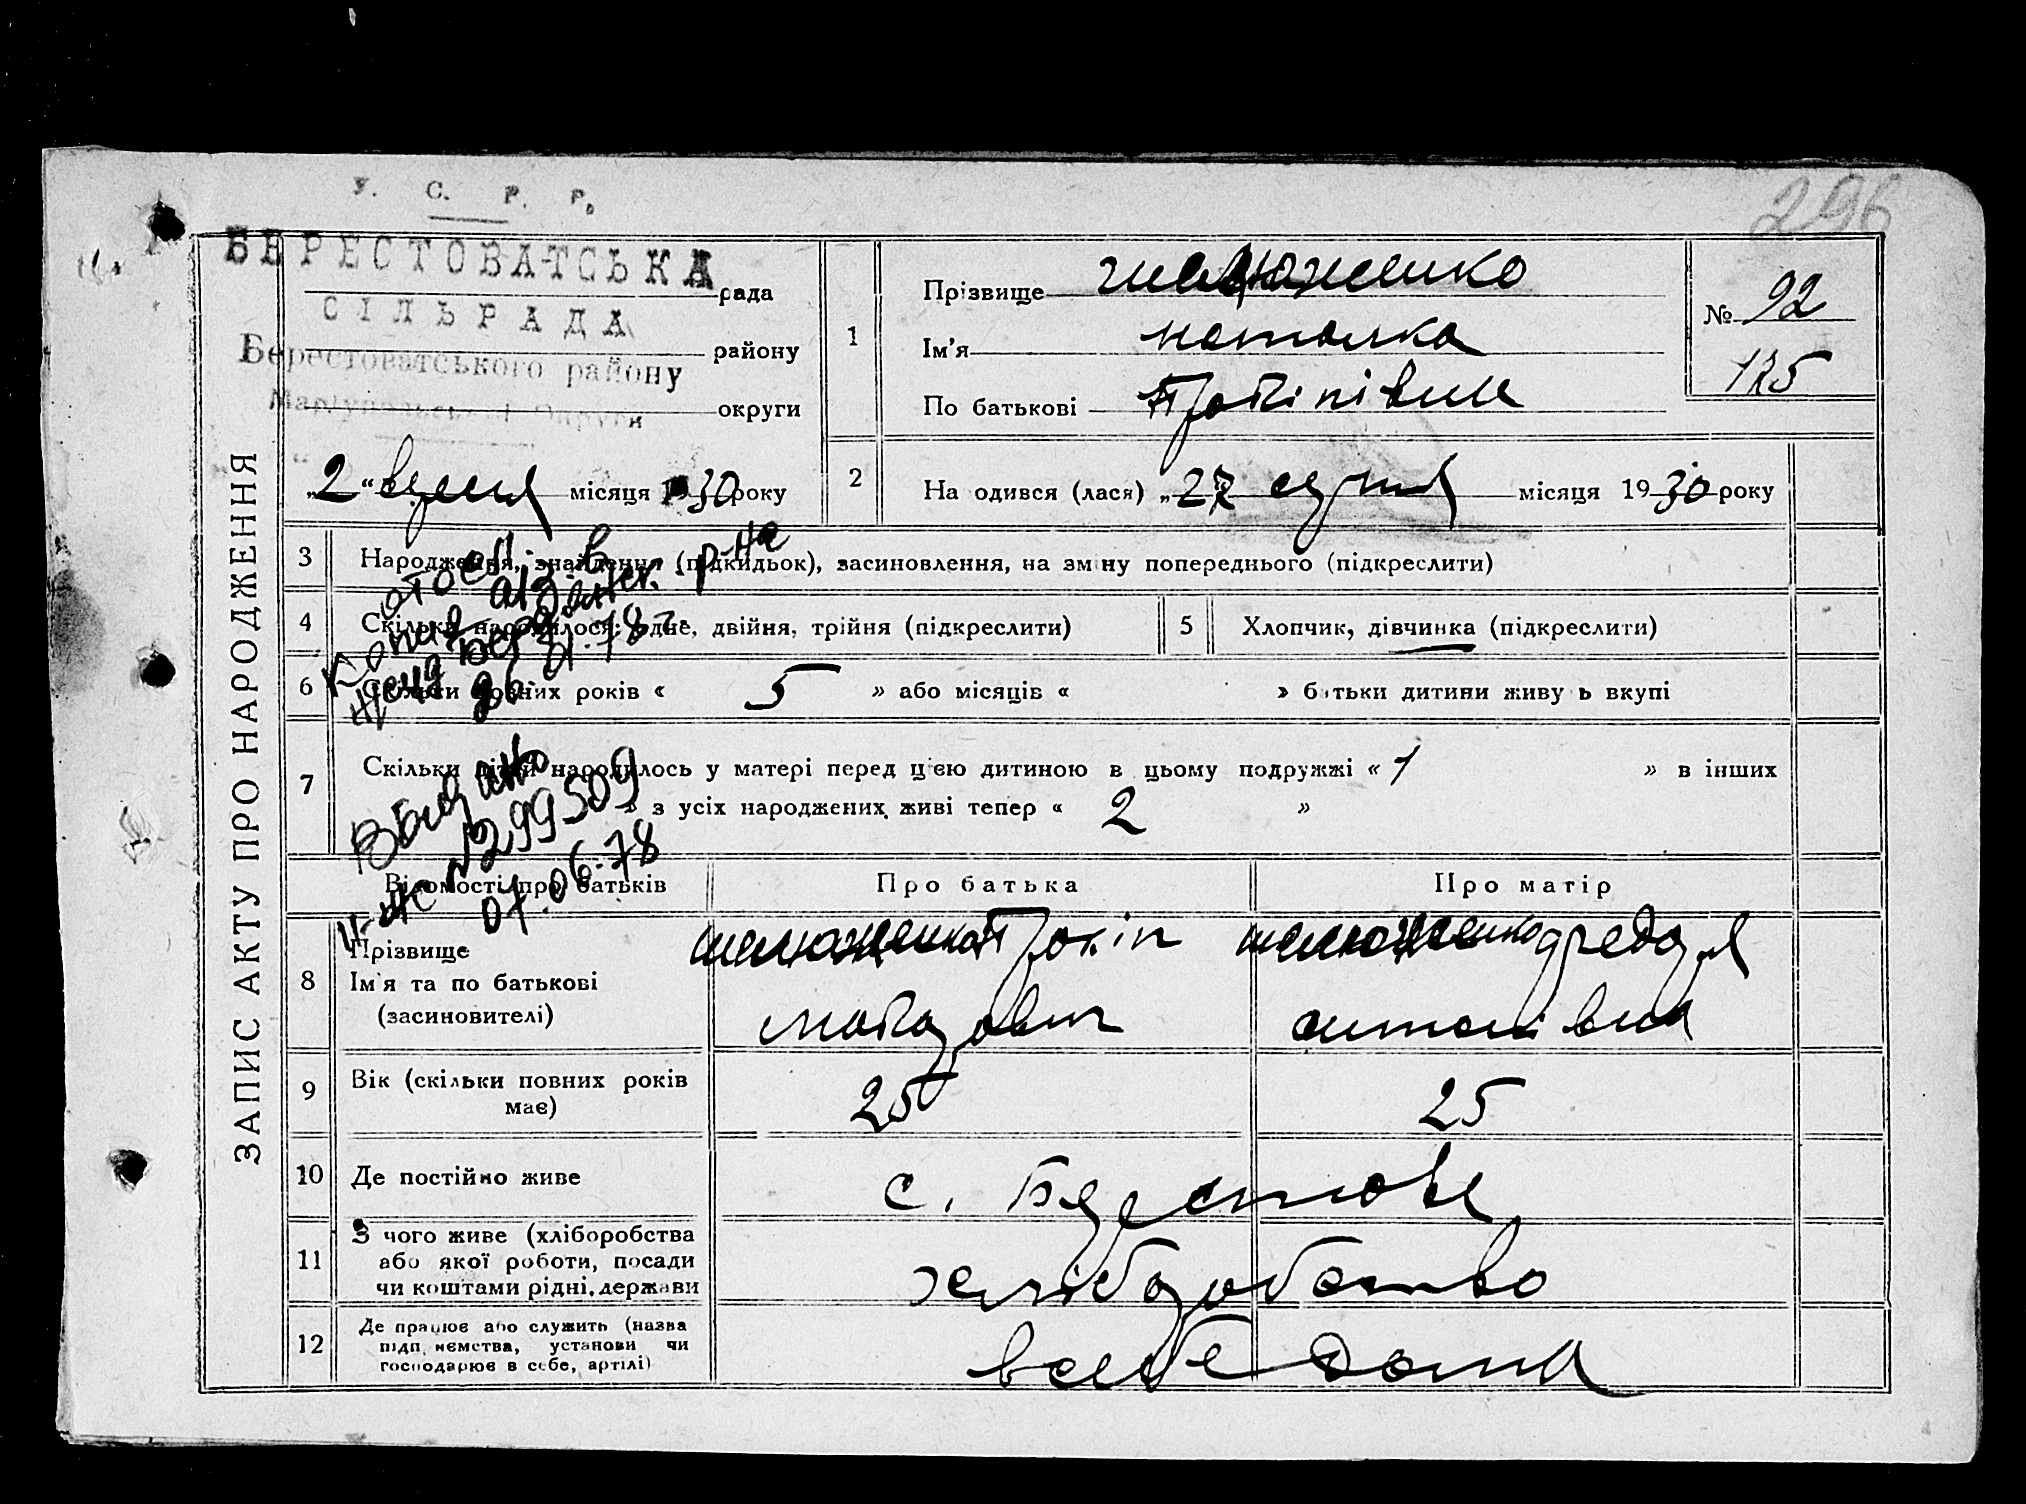 296
У. С. Р. Р.
БЕРЕСТОВАТСЬКА рада
СІЛЬРАДА
Берестоватського району району
Маріупольської Округи округи
„2“ вересня місяця 1930 року
ЗАПИС АКТУ ПРО НАРОДЖЕННЯ
1
Прізвище
Ім'я наталка
По батькові Прокіпівна
№ 92
125
2 На одився (лася) „27 серпня місяця 1930 року
3 Народження, знайдення (підкидьок), засиновлення, на зміну попереднього (підкреслити)
4 Скільки народилося: одне, двійня, трійня (підкреслити)
5 Хлопчик, дівчинка (підкреслити)
6 Скільки повних років « 5 » або місяців « » батьки дитини живуть вкупі
7 Скільки дітей народилось у матері перед цією дитиною в цьому подружжі « 1 » в інших
» з усіх народжених живі тепер « 2 »
Копия
26.01.78 г.
Выдано
№299509
07.06.78
Відомості про батьків Про батька Про матір
8 Прізвище
Ім'я та по батькові
(засновителі)
Прокіп
антонівна
9 Вік (скільки повних років має) 25 25
10 Де постійно живе с. Берестове
11 З чого живе (хліборобства
або якої роботи, посади
чи коштами рідні, держави
хліборобство
12 Де працює або служить (назва
підприємства, установи чи
господарює в себе, артілі)
в себе дома